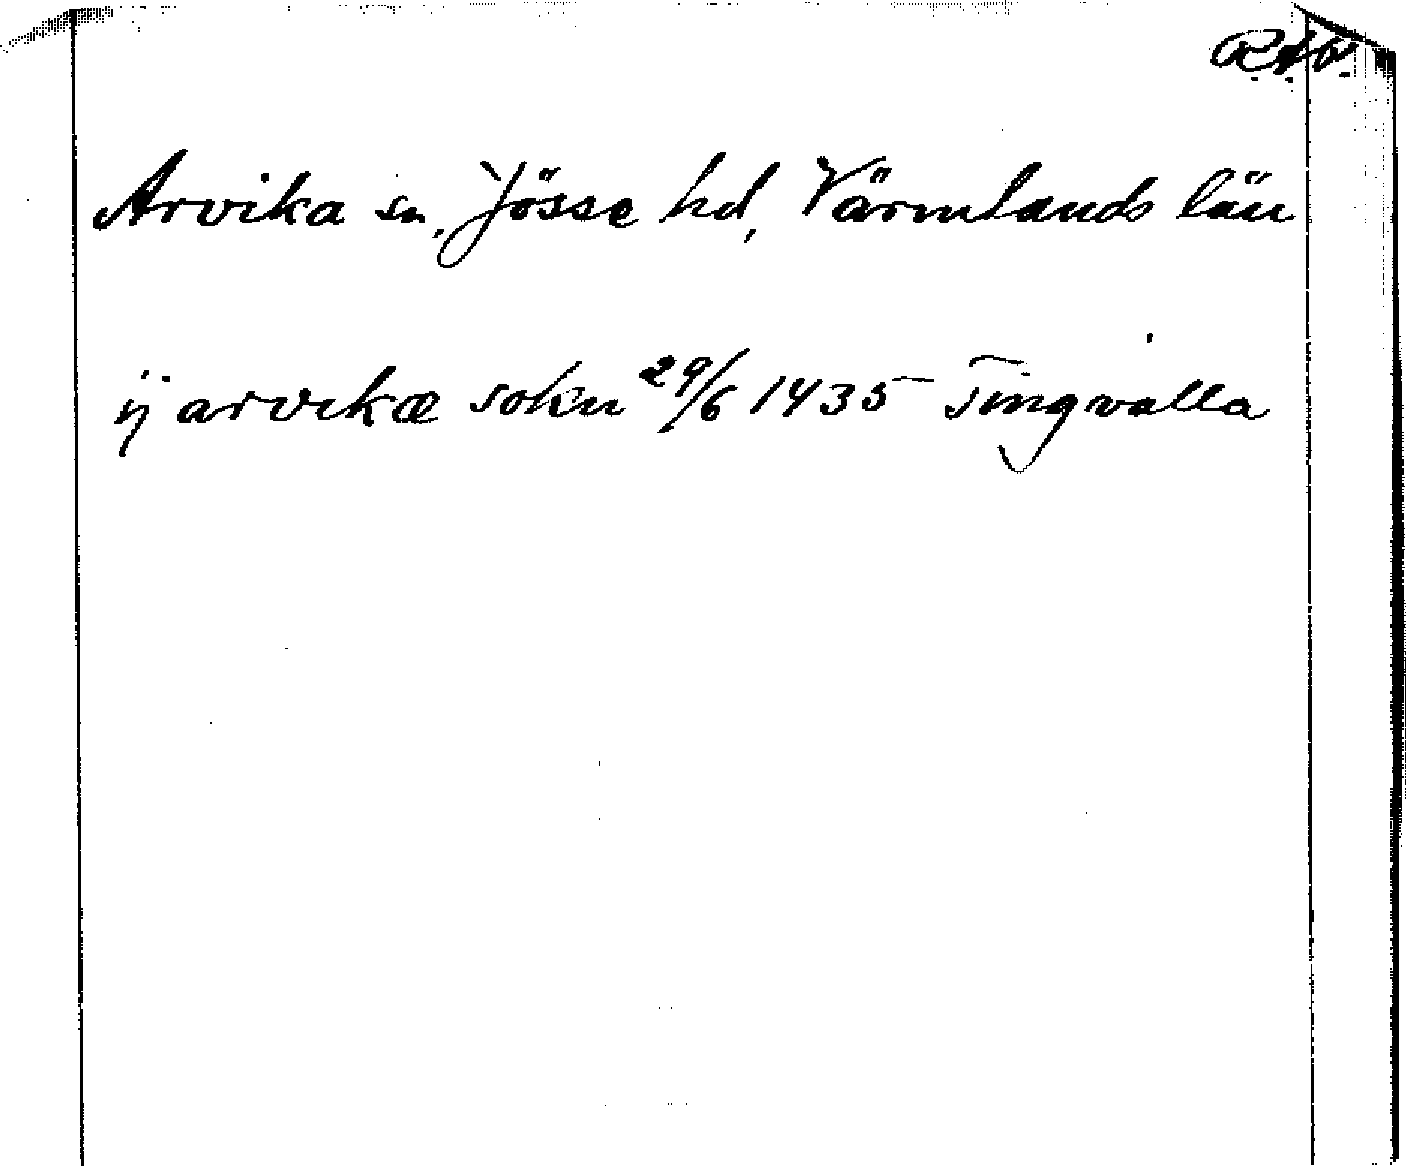 R.A.P.
Arvika sn, Jösse hd, Värmlands län
ij arvikæ sokn 29/6 1435 Tingvalla